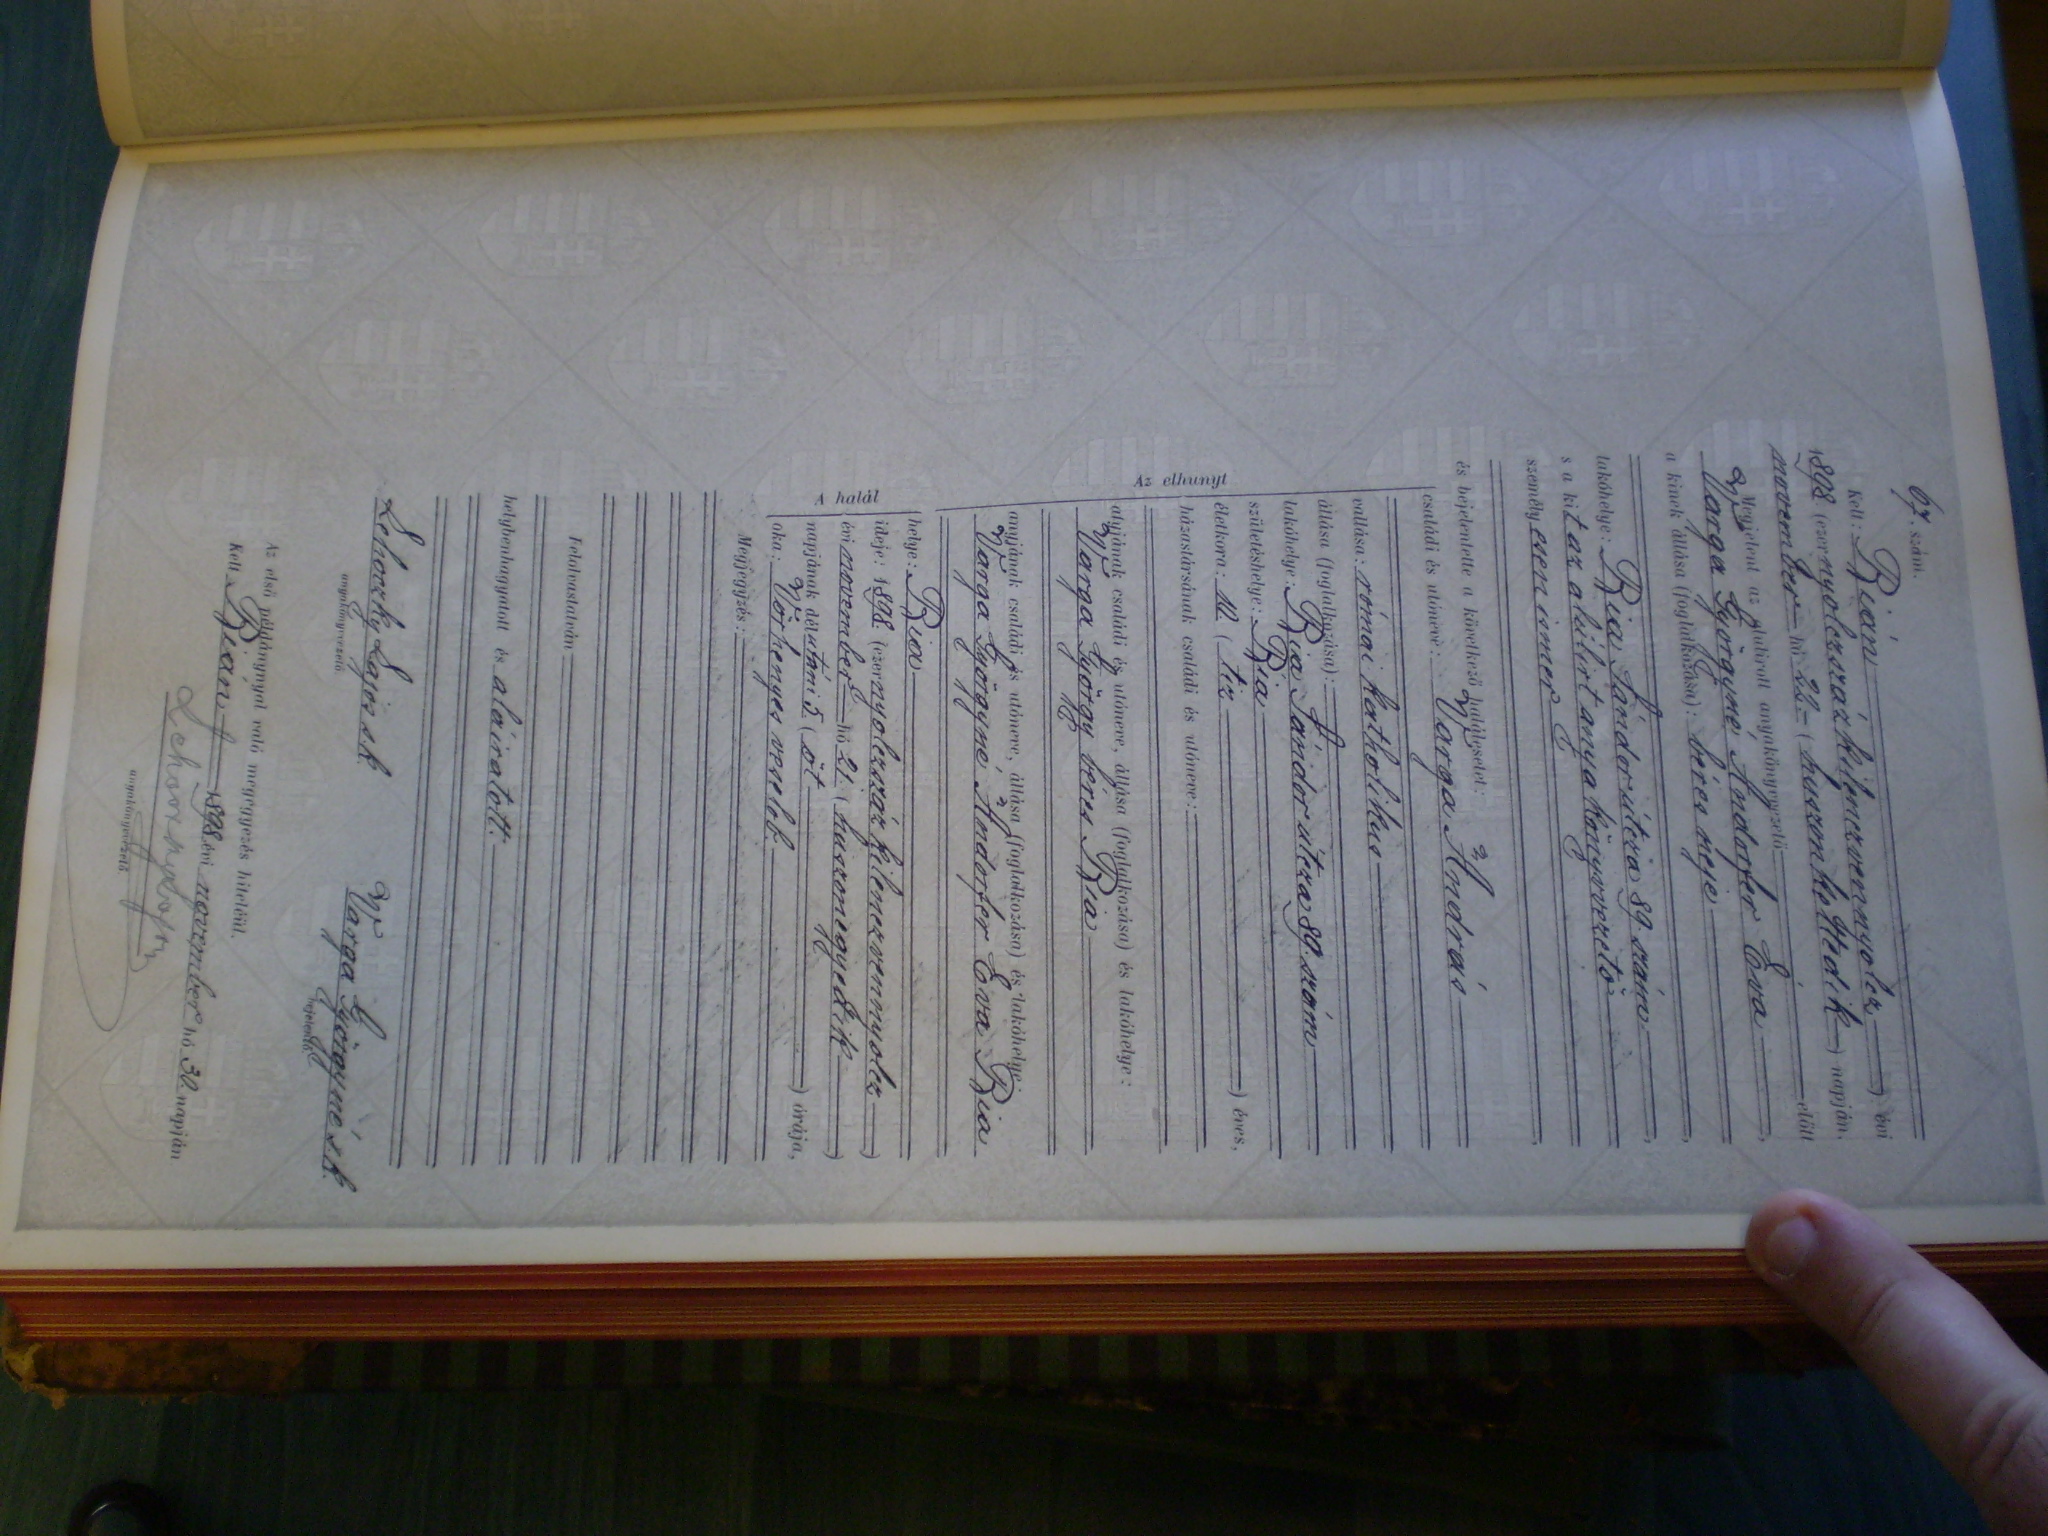 67. szám.
Kelt: Bián (ezer
1898 (ezernyolczszázkilenczvennyolcz) évi
november hó 22-(huszonkettedik) napján.
Megjelent az alulírott anyakönyvezető előtt
Varga Györgyné Andorfer Éva
a kinek állása (foglalkozása): béres neje
lakóhelye: Bia Sándor útcza 89. szám
s a kit az alúlirt anyakönyvvezető
személyesen ismer
és bejelentette a következő halálesetet:
Az elhunyt
családi és utóneve: Varga András
vallása: római katholikus
állása (foglalkozása):
lakóhelye: Bia Sándor útcza 89. szám
születéshelye: Bia
életkora: 10 (tíz) éves,
házastársának családi és utóneve:
atyjának családi és utóneve, állása (foglalkozása) és lakóhelye:
Varga György béres Bia
anyjának családi és utóneve, állása (foglalkozása) és lakóhelye:
Varga Györgyné Andorfer Éva Bia
A halál
helye: Bia
ideje: 1898 (ezernyolczszázkilenczvennyolcz)
évi november hó 21. (huszonegyedik)
napjának délutáni 5 (öt) órája,
oka: Vörhenyes veselob
Megjegyzés:
Felolvastatván
helybenhagyatott és aláiratott.
Lehoczky Lajos sk
anyakönyvezető
Varga Györgyné sk.
bejelentő
Az első példánynyal való megegyezés hiteléül.
Kelt Bián, 1898. évi november hó 30. napján
anyakönyvezető